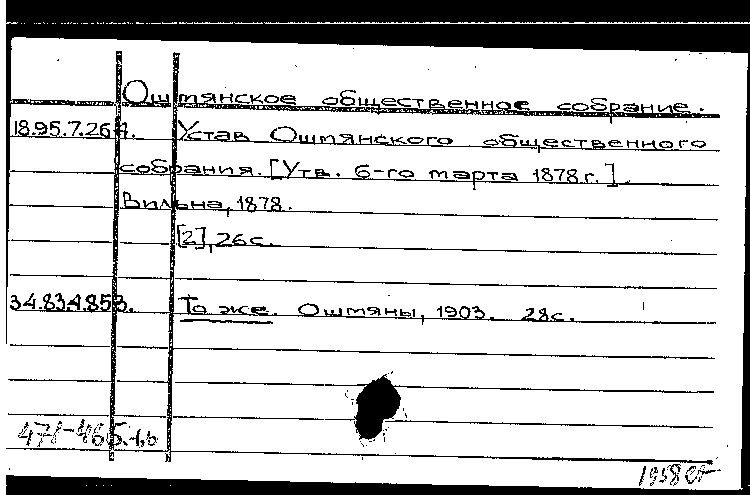 Ошмянское общественное собрание.
18.95.7.264. Устав Ошмянского общественного
собрания. [Утв. 6-го марта 1878 г.]
Вильна, 1878.
[2], 26 с.
34.83.4.853. То же. Ошмяны, 1903. 28 с.